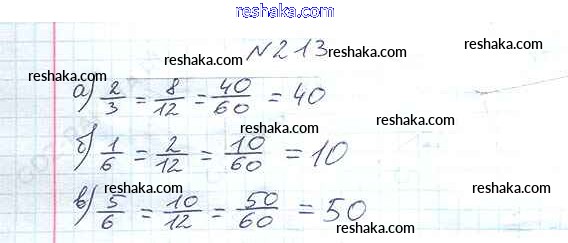 reshaka.com
reshaka.com № 213 reshaka.com
reshaka.com reshaka.com
а) 2/3 = 8/12 = 40/60 = 40
reshaka.com reshaka.com reshaka.com
б) 1/6 = 2/12 = 10/60 = 10
reshaka.com reshaka.com reshaka.com
в) 5/6 = 10/12 = 50/60 = 50
reshaka.com reshaka.com reshaka.com